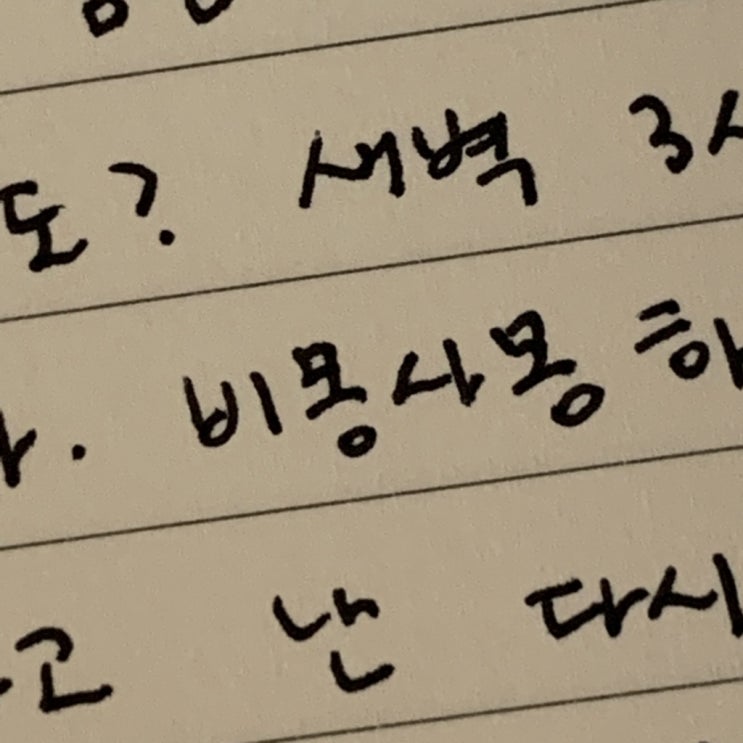 도? 새벽 3시
. 비몽사몽 하
고 난 다시